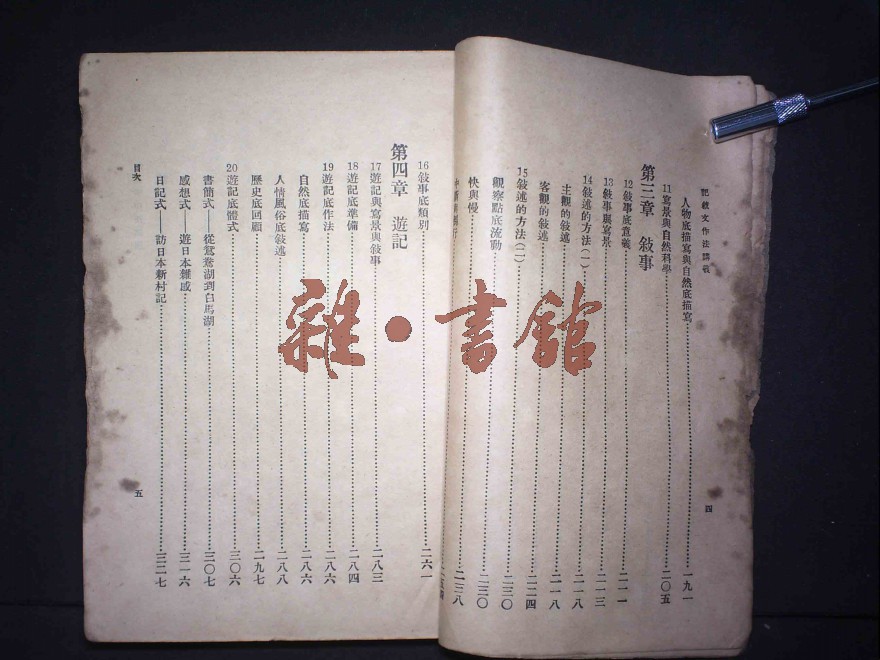 記敍文作法講義
人物底描寫與自然底描寫……一九一
11寫景與自然科學……二〇五
第三章 敍事
12敍事底意義……二一一
13敍事與寫景……二一三
14敍述的方法(一)……二一八
主觀的敍述……二一八
客觀的敍述……二二四
15敍述的方法(二)……二三〇
觀察點底流動……二三〇
快與慢……二三八
四
16敍事底類別……二六一
第四章 遊記
17遊記與寫景與敍事……二八三
18遊記底準備……二八四
19遊記底作法……二八六
自然底描寫……二八六
人情風俗底敍述……二八八
歷史底回顧……二九七
20遊記底體式……三〇六
書簡式——從鴛鴦湖到白馬湖……三〇七
感想式——遊日本雜感……三一六
日記式——訪日本新村記……三二七
目次
五
雜·書館